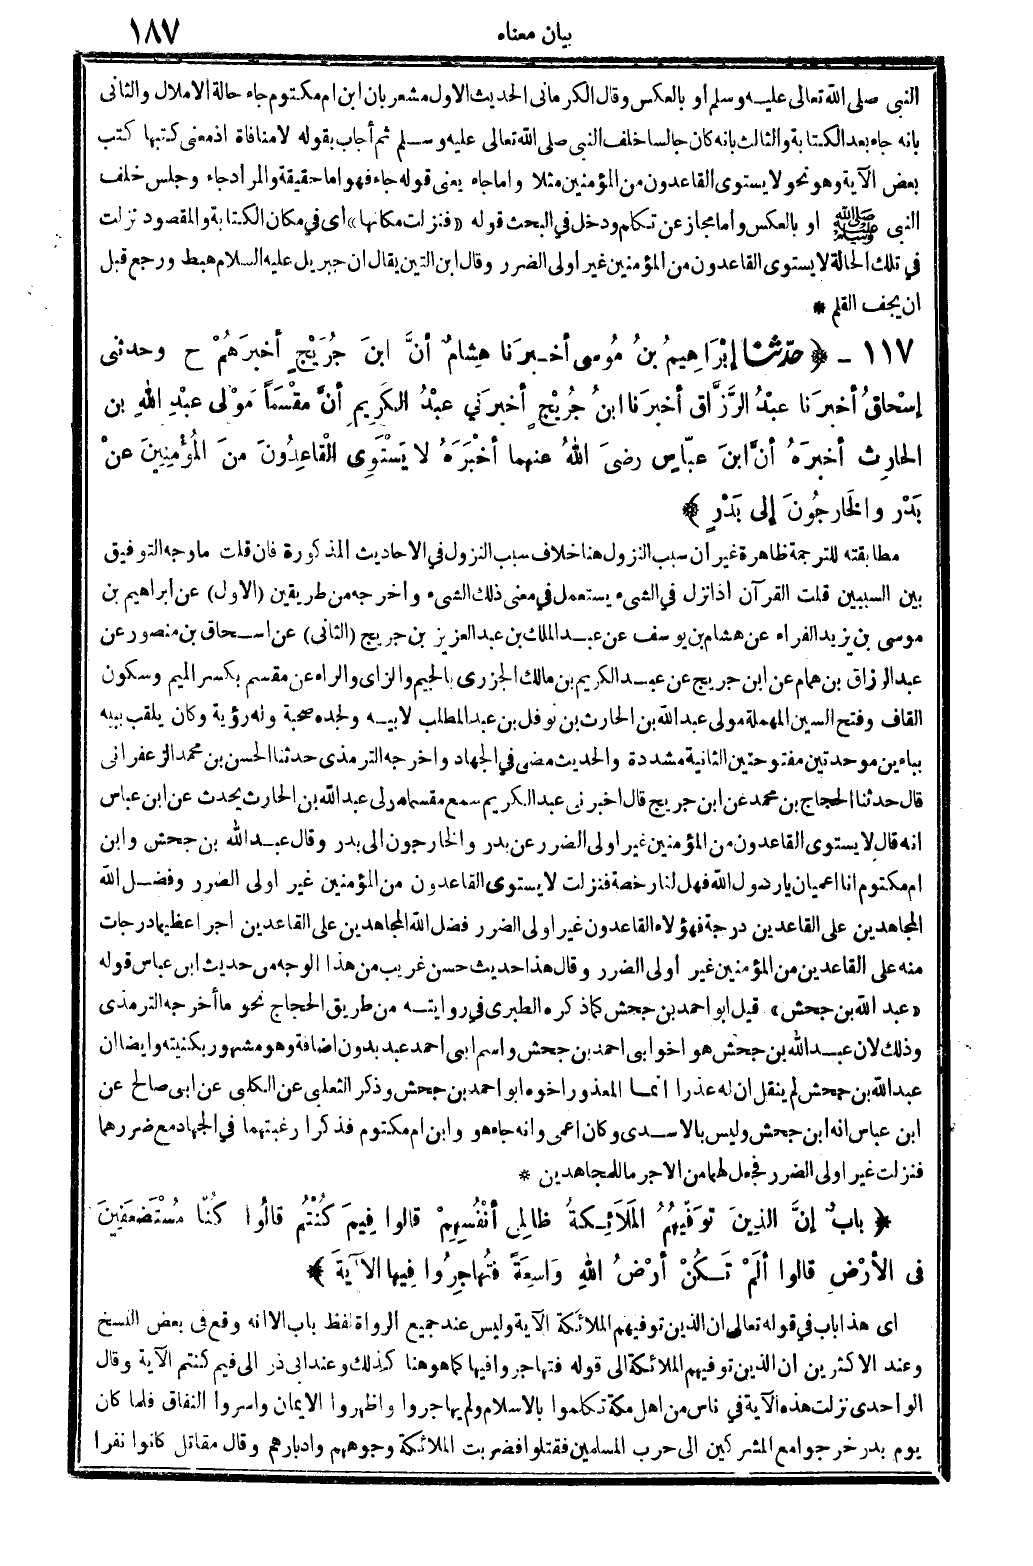 بيان معناه ١٨٧
النبى صلى الله تعالى عليه وسلم أو بالعكس وقال الكرمانى الحديث الاول مشعر بان ابن ام مكتوم جاء حالة الاملال والثانى
بانه جاء بعد الكتابة والثالث بانه كان جالسا خلف النبى صلى الله تعالى عليه وسلم ثم أجاب بقوله لا منافاة اذ معنى كتبها كتب
بعض الآية وهو نحو لا يستوى القاعدون من المؤمنين مثلا واما جاء يعنى قوله جاء فهو اما حقيقة والمراد جاء وجلس خلف
النبى ﷺ او بالعكس وأما مجاز عن تكلم ودخل في البحث قوله «فنزلت مكانها» أى في مكان الكتابة والمقصود نزلت
في تلك الحالة لا يستوى القاعدون من المؤمنين غير اولى الضرر وقال ابن التين يقال ان جبريل عليه السلام هبط ورجع قبل
ان يجف القلم *
١١٧ - ﴿ حدثنا إبْرَاهِيمُ بنُ مُوسى أخبرَنا هِشامٌ أنَّ ابنَ جُرَيْجٍ أخبرَهُمْ ح وحدثنى
إسْحاقُ أخبرَنا عبْدُ الرَّزَّاق أخبرَنا ابنُ جُرَيْجٍ أخبرَني عبْدُ الكَرِيمِ أنَّ مِقْسَماً مَوْلى عبْدِ اللهِ بنِ
الحارِثِ أخبرَهُ أنَّ ابنَ عبّاسٍ رضىَ اللهُ عنهما أخْبَرَهُ لا يَسْتَوِى الْقاعِدُونَ منَ المُؤْمِنِينَ عنْ
بَدْرٍ والخارجُونَ إلى بَدْرٍ ﴾
مطابقته للترجمة ظاهرة غير ان سبب النزول هنا خلاف سبب النزول في الاحاديث المذكورة فان قلت ما وجه التوفيق
بين السببين قلت القرآن اذا نزل في الشىء يستعمل في معنى ذلك الشىء واخرجه من طريقين (الاول) عن ابراهيم بن
موسى بن يزيد الفراء عن هشام بن يوسف عن عبد الملك بن عبد العزيز بن جريج (الثانى) عن اسحاق بن منصور عن
عبد الرزاق بن همام عن ابن جريج عن عبد الكريم بن مالك الجزرى بالجيم والزاى والراء عن مقسم بكسر الميم وسكون
القاف وفتح السين المهملة مولى عبد الله بن الحارث بن نوفل بن عبد المطلب لابيه ولجده صحبة وله رؤية وكان يلقب ببه
بباءين موحدتين مفتوحتين الثانية مشددة والحديث مضى في الجهاد واخرجه الترمذى حدثنا الحسن بن محمد الزعفرانى
قال حدثنا الحجاج بن محمد عن ابن جريج قال اخبرنى عبد الكريم سمع مقسما مولى عبد الله بن الحارث يحدث عن ابن عباس
انه قال لا يستوى القاعدون من المؤمنين غير اولى الضرر عن بدر والخارجون الى بدر وقال عبد الله بن جحش وابن
ام مكتوم انا اعميان يا رسول الله فهل لنا رخصة فنزلت لا يستوى القاعدون من المؤمنين غير اولى الضرر وفضل الله
المجاهدين على القاعدين درجة فهؤلاء القاعدون غير اولى الضرر فضل الله المجاهدين على القاعدين اجرا عظيما درجات
منه على القاعدين من المؤمنين غير أولى الضرر وقال هذا حديث حسن غريب من هذا الوجه من حديث ابن عباس قوله
«عبد الله بن جحش» قيل ابو احمد بن جحش كما ذكره الطبرى في روايته من طريق الحجاج نحو ما أخرجه الترمذى
وذلك لان عبد الله بن جحش هو اخو ابى احمد بن جحش واسم ابى احمد عبد بدون اضافة وهو مشهور بكنيته وايضا ان
عبد الله بن جحش لم ينقل ان له عذرا انما المعذور اخوه ابو احمد بن جحش وذكر الثعلبى عن الكلبى عن ابى صالح عن
ابن عباس انه ابن جحش وليس بالاسدى وكان اعمى وانه جاء هو وابن ام مكتوم فذكرا رغبتهما في الجهاد مع ضررهما
فنزلت غير اولى الضرر فجعل لهما من الاجر ما للمجاهدين *
﴿ بابٌ إنَّ الذِينَ توَفّيهُمُ المَلَائِكةُ ظالِمِى أنْفُسِهِمْ قالوا فِيمَ كُنْتُمْ قالُوا كُنّا مُسْتَضعَفِينَ
فى الأرْضِ قالوا ألَمْ تَكُنْ أرْضُ اللهِ وَاسِعَةً فتُهاجِرُوا فِيها الآيَةَ ﴾
اى هذا باب في قوله تعالى ان الذين توفيهم الملائكة الآية وليس عند جميع الرواة لفظ باب الا انه وقع فى بعض النسخ
وعند الاكثرين ان الذين توفيهم الملائكة الى قوله فتهاجروا فيها كما هو هنا كذلك وعند ابى ذر الى فيم كنتم الآية وقال
الواحدى نزلت هذه الآية في ناس من اهل مكة تكلموا بالاسلام ولم يهاجروا واظهروا الايمان واسروا النفاق فلما كان
يوم بدر خرجوا مع المشركين الى حرب المسلمين فقتلوا فضربت الملائكة وجوههم وادبارهم وقال مقاتل كانوا نفرا